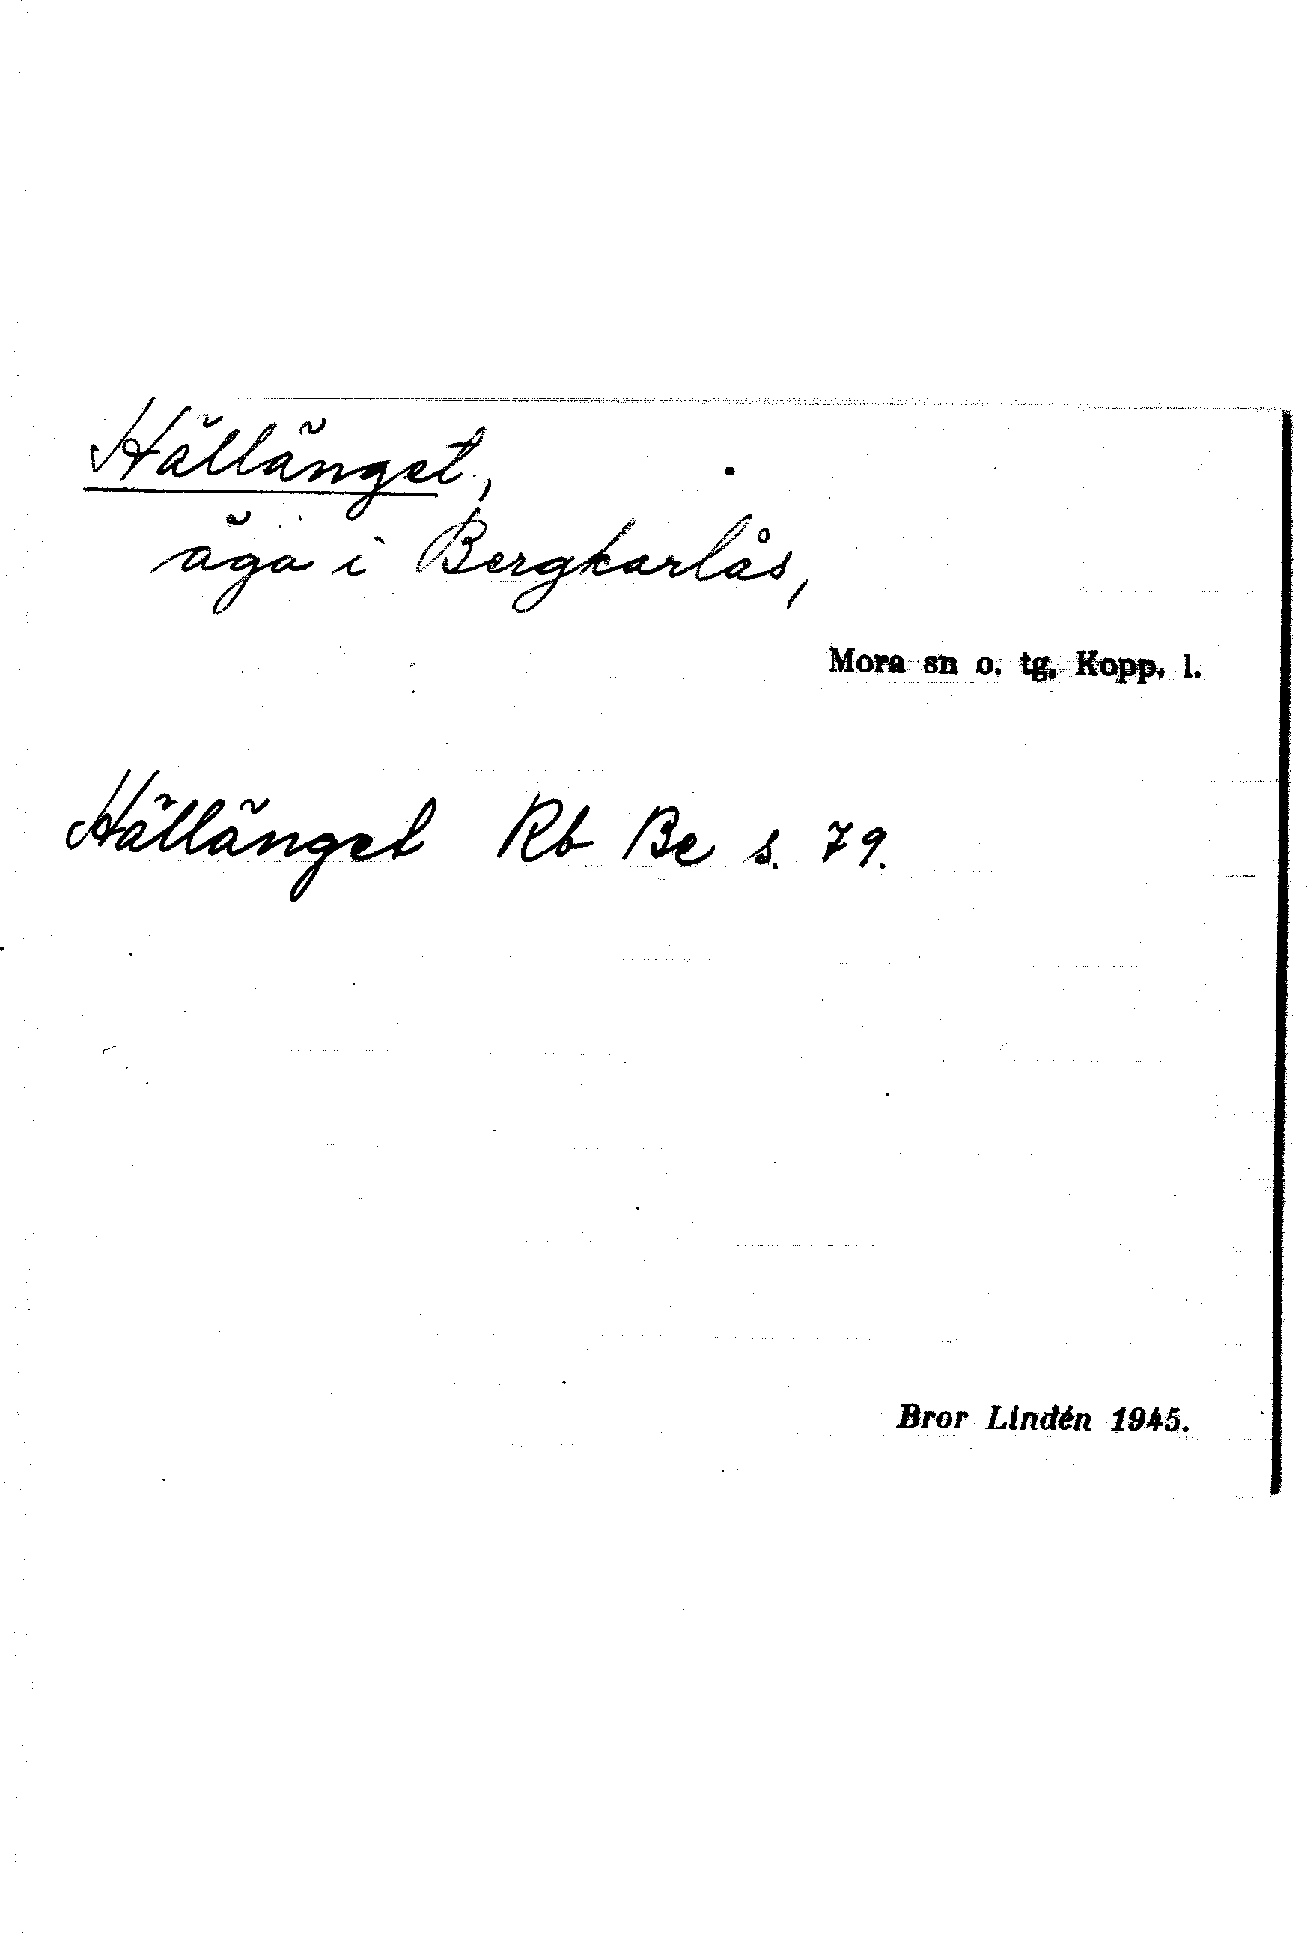 Hällänget,
äga i Bergkarlås,
Mora sn o. tg. Kopp. l.
Hällänget Rb Be s. 79.
Bror Lindén 1945.